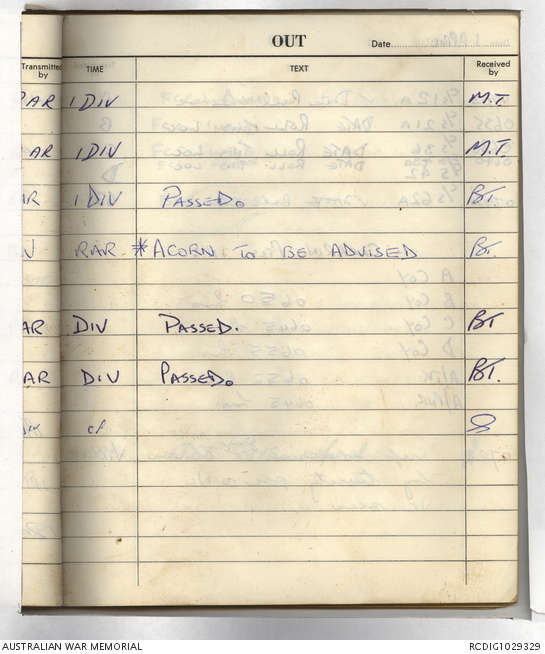 OUT
Date
Transmitted by TIME TEXT Received by
AR 1 DIV M.T.
AR 1 DIV M.T.
AR 1 DIV PASSED. BT.
RAR *ACORN TO BE ADVISED BT.
AR DIV PASSED. BT
AR DIV PASSED. BT.
AUSTRALIAN WAR MEMORIAL RCDIG1029329